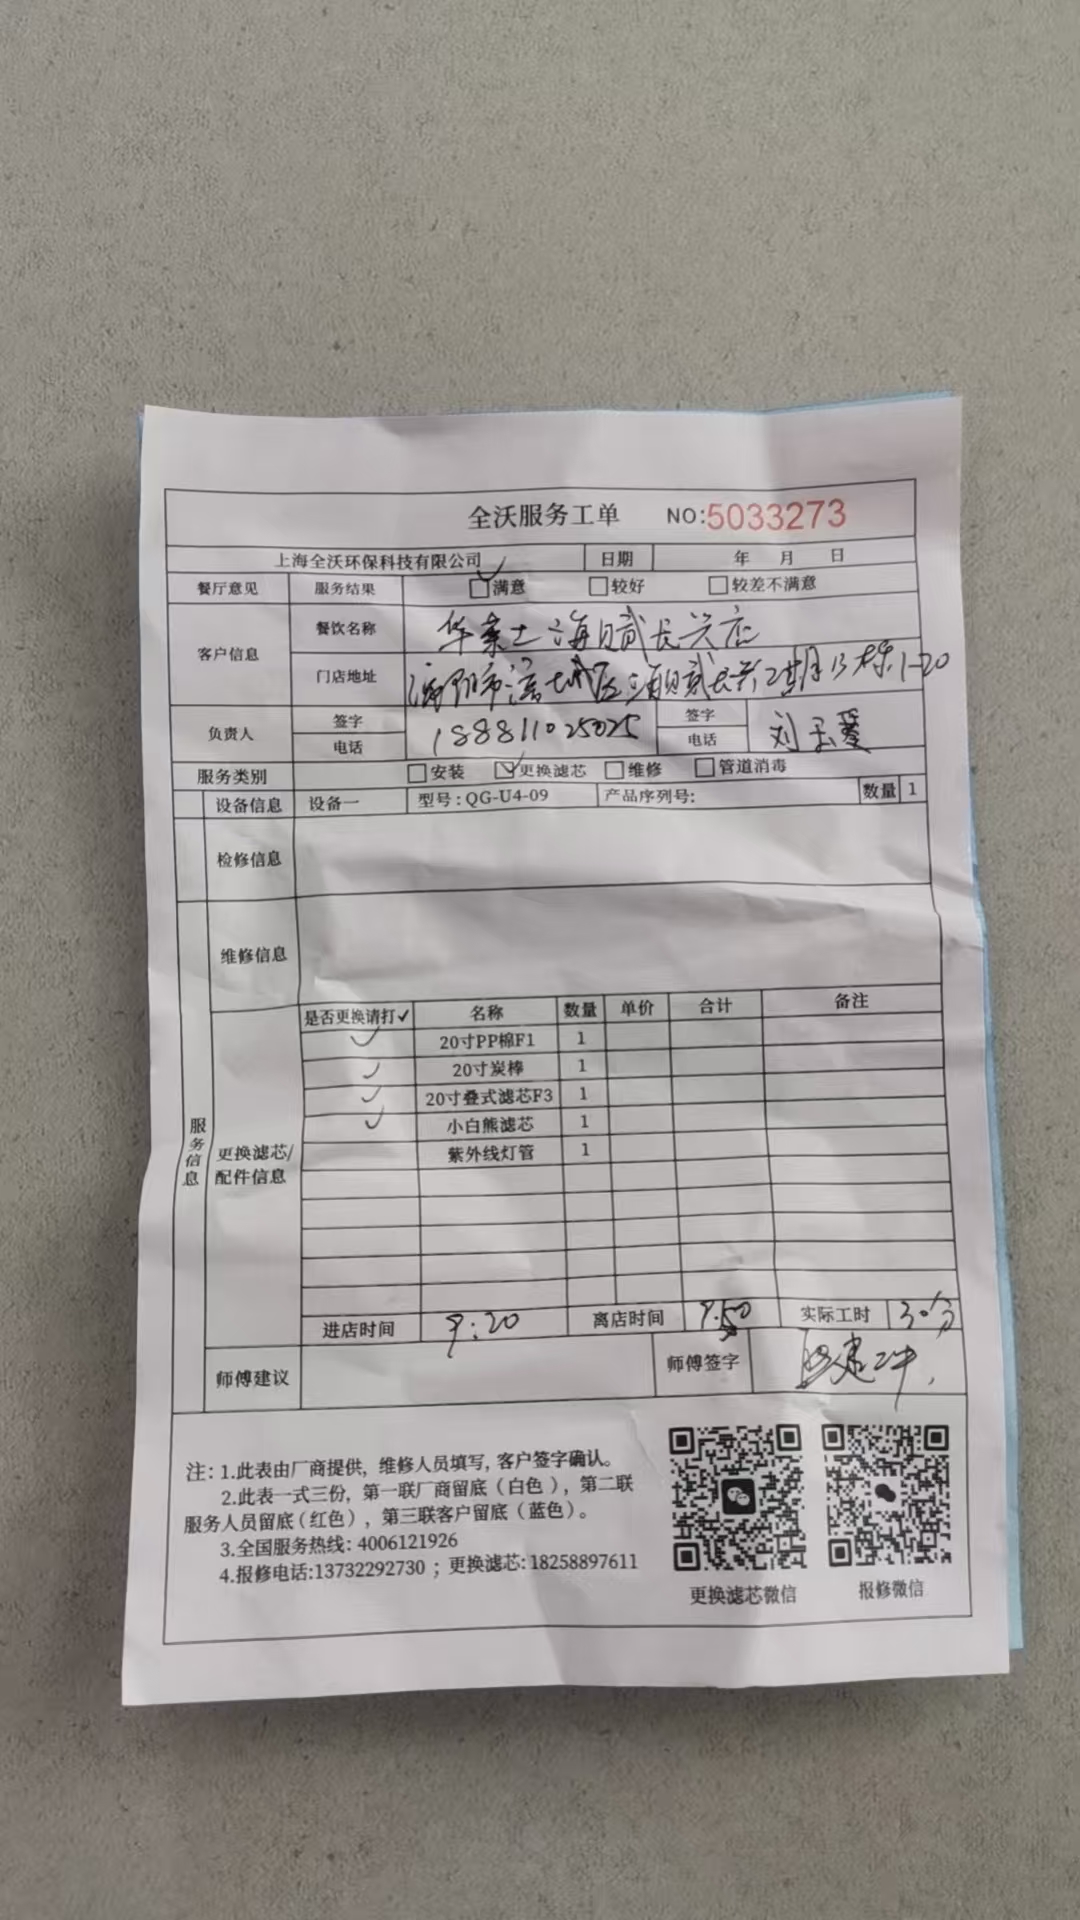 全沃服务工单 NO:5033273
上海全沃环保科技有限公司 日期 年 月 日
餐厅意见 服务结果 满意 较好 较差不满意
客户信息 餐饮名称 华莱士海赋长兴店
门店地址 海赋长兴2期13栋1-20
负责人 签字 电话 18881025025 签字 电话 刘玉爱
服务类别 安装 更换滤芯 维修 管道消毒
设备信息 设备一 型号:QG-U4-09 产品序列号: 数量 1
检修信息
维修信息
服务信息
更换滤芯/配件信息
是否更换请打✓ 名称 数量 单价 合计 备注
✓ 20寸PP棉F1 1
✓ 20寸炭棒 1
✓ 20寸叠式滤芯F3 1
✓ 小白熊滤芯 1
紫外线灯管 1
进店时间 9:20 离店时间 9:50 实际工时 30分
师傅建议 师傅签字
注: 1.此表由厂商提供, 维修人员填写, 客户签字确认。
2.此表一式三份, 第一联厂商留底(白色), 第二联
服务人员留底(红色), 第三联客户留底(蓝色)。
3.全国服务热线: 4006121926
4.报修电话:13732292730 ; 更换滤芯: 18258897611
更换滤芯微信 报修微信